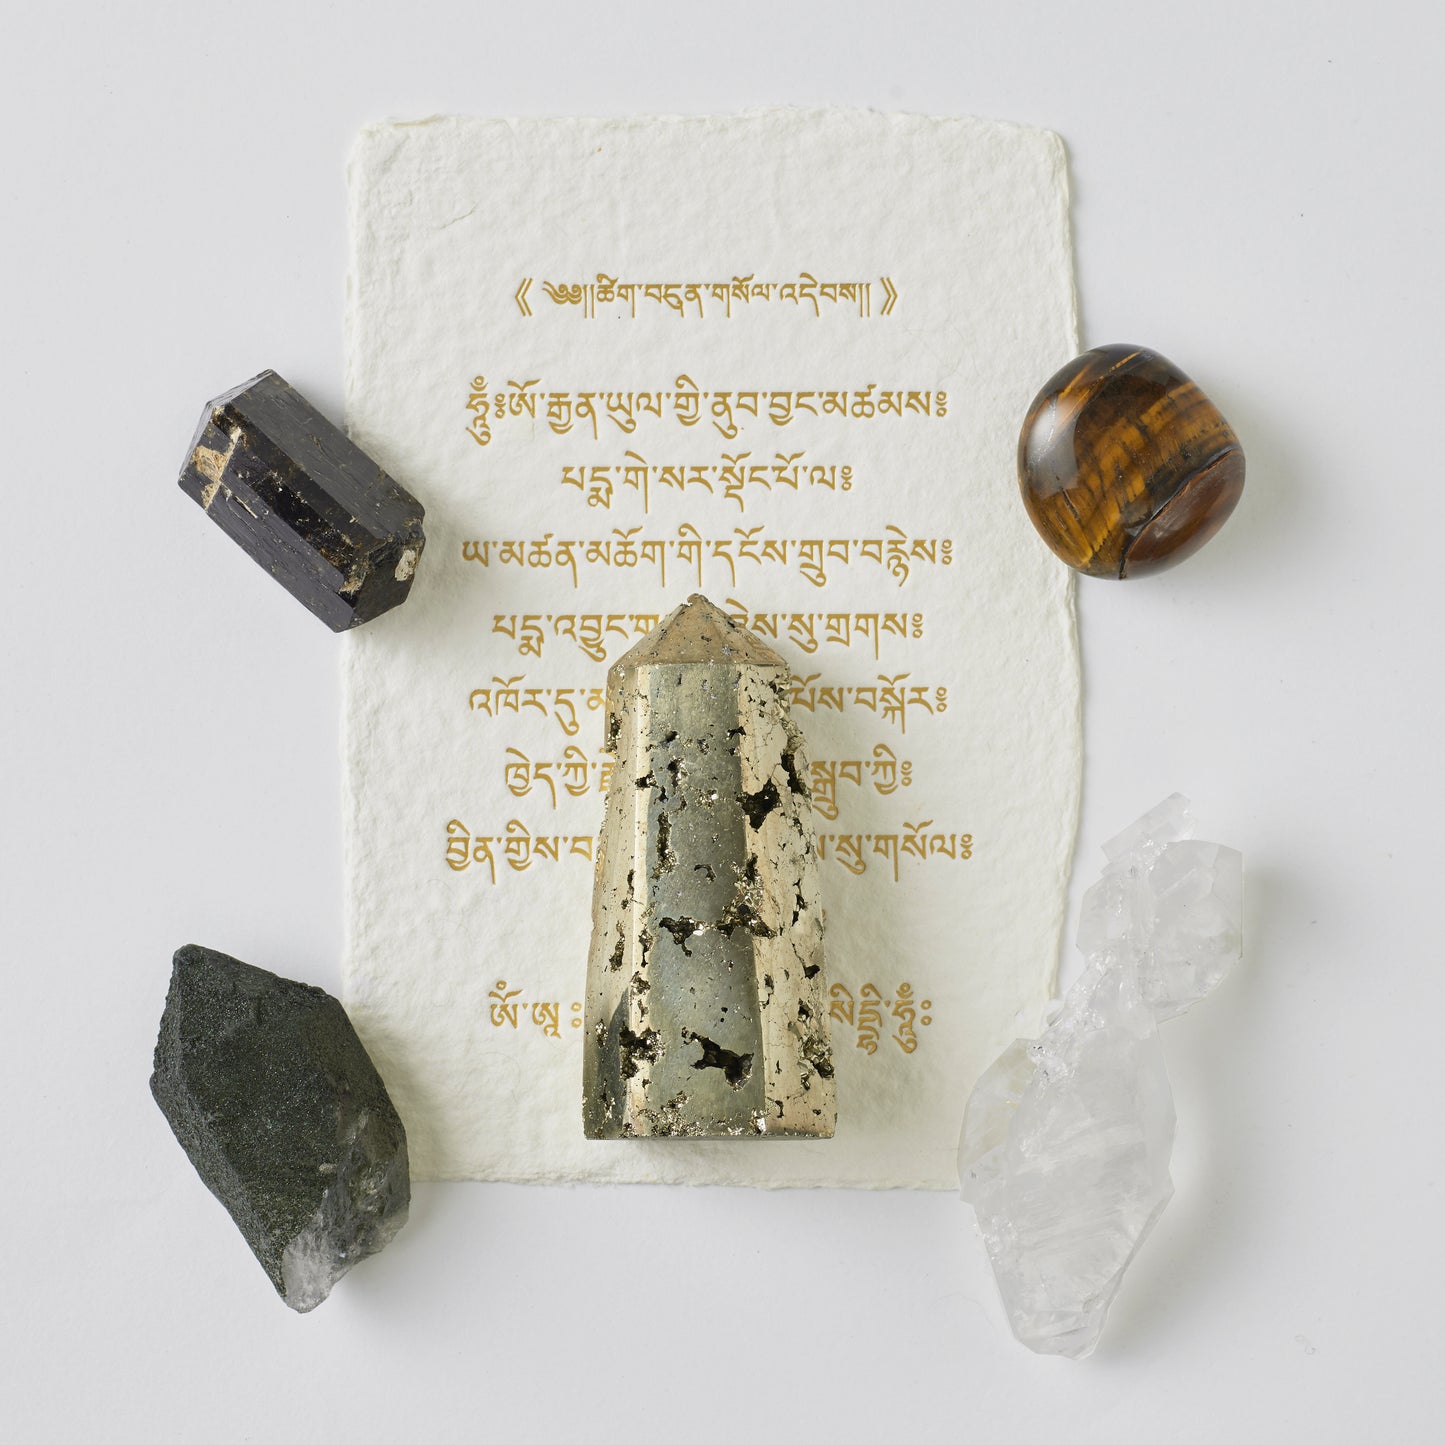 《 ༄༅།།ཚིག་བདུན་གསོལ་འདེབས།། 》
ཧཱུྃ༔ཨོ་རྒྱན་ཡུལ་གྱི་ནུབ་བྱང་མཚམས༔
པདྨ་གེ་སར་སྡོང་པོ་ལ༔
ཡ་མཚན་མཆོག་གི་དངོས་གྲུབ་བརྙེས༔
པདྨ་འབྱུང་ ཞེས་སུ་གྲགས༔
འཁོར་དུ་ པོས་བསྐོར༔
ཁྱེད་ཀྱི་ སྒྲུབ་ཀྱི༔
བྱིན་གྱིས་ སུ་གསོལ༔
ཨོཾ་ཨཱཿ སིདྡྷི་ཧཱུྃ༔